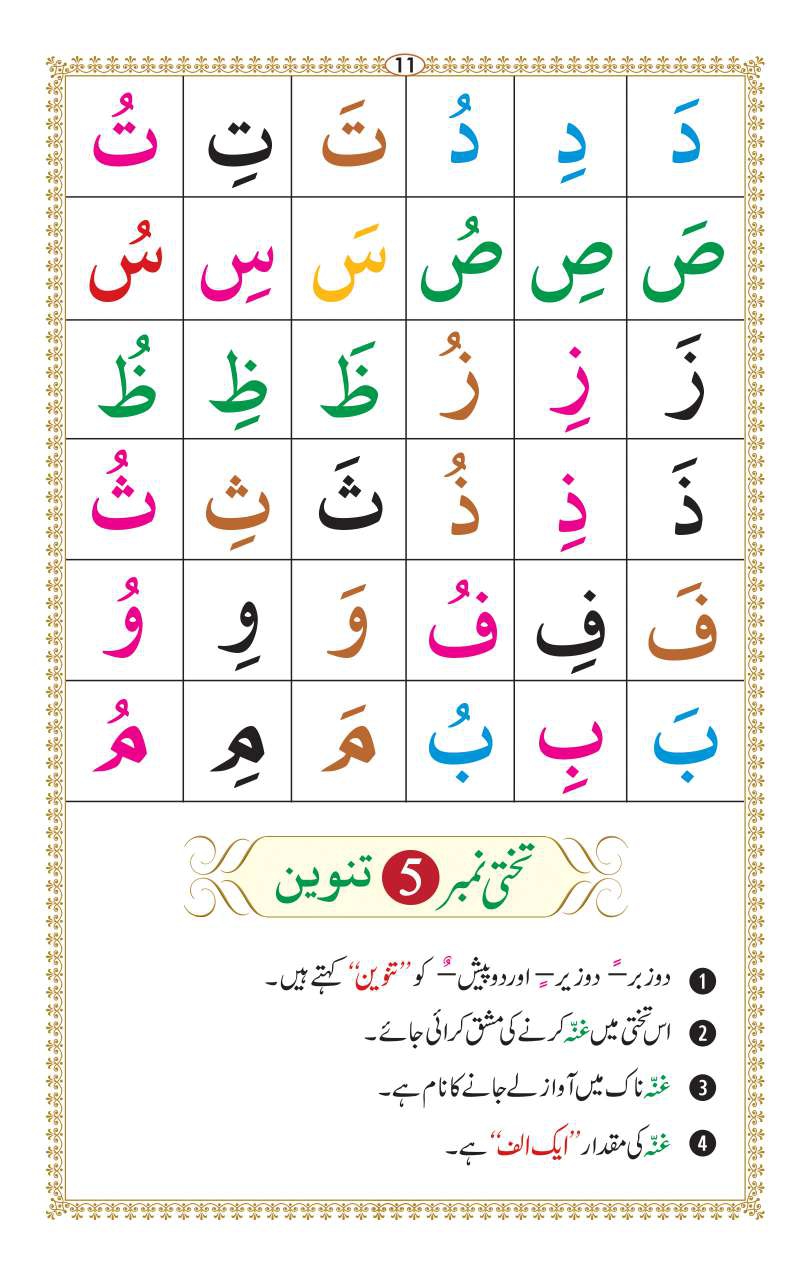 11
دَ دِ دُ تَ تِ تُ
صَ صِ صُ سَ سِ سُ
زَ زِ زُ ظَ ظِ ظُ
ذَ ذِ ذُ ثَ ثِ ثُ
فَ فِ فُ وَ وِ وُ
بَ بِ بُ مَ مِ مُ
تختی نمبر 5 تنوین
1 دوزبر ـً دوزیر ـٍ اور دوپیش ـٌ کو ”تنوین“ کہتے ہیں۔
2 اس تختی میں غنّہ کرنے کی مشق کرائی جائے۔
3 غنّہ ناک میں آواز لے جانے کا نام ہے۔
4 غنّہ کی مقدار ”ایک الف“ ہے۔